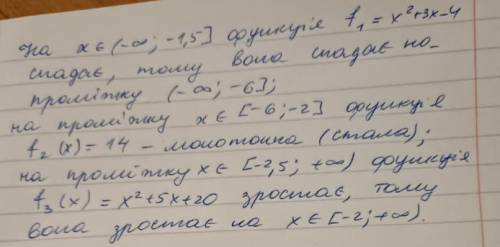 На x ∈ (-∞; -1,5] функція f₁ = x²+3x-4
спадає, тому вона спадає на-
проміжку (-∞; -6];
на проміжку x ∈ [-6; -2] функція
f₂(x) = 14 - монотонна (стала);
на проміжку x ∈ [-2,5; +∞) функція
f₃(x) = x²+5x+20 зростає, тому
вона зростає на x ∈ [-2; +∞).